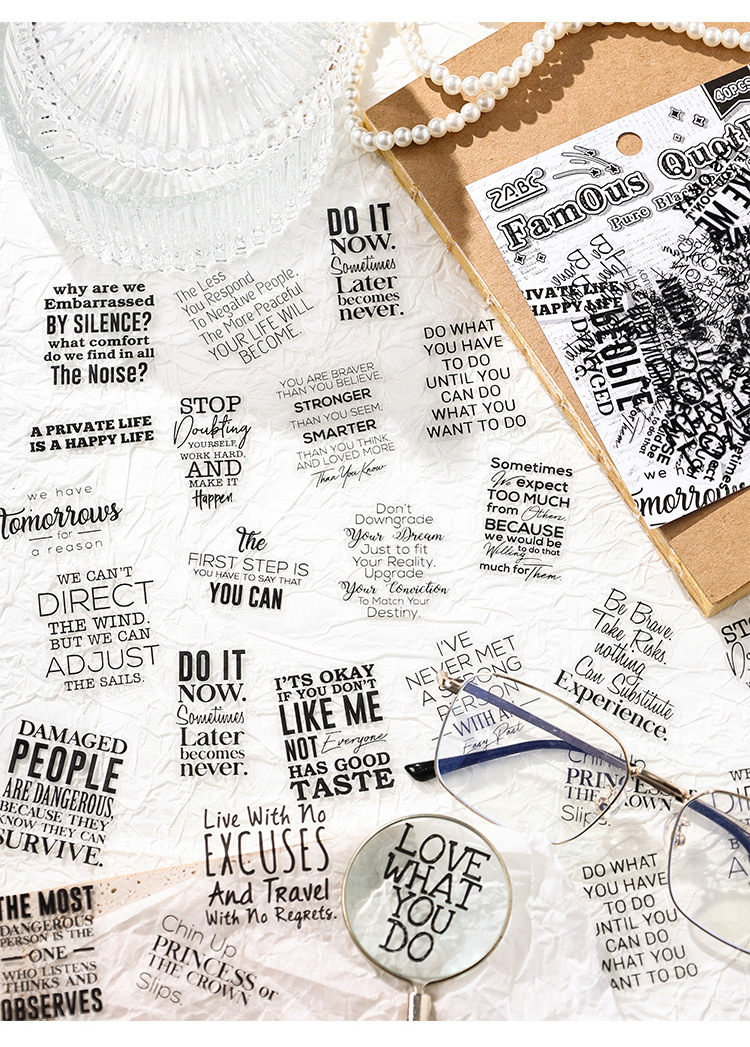 40PCS
ZABC
Famous Quot
Pure Bla
PRIVATE LIFE
HAPPY LIFE
DO IT
NOW.
Sometimes
Later
becomes
never.
why are we
Embarrassed
BY SILENCE?
what comfort
do we find in all
The Noise?
The Less
You Respond
To Negative People,
The More Peaceful
YOUR LIFE WILL
BECOME.
DO WHAT
YOU HAVE
TO DO
UNTIL YOU
CAN DO
WHAT YOU
WANT TO DO
A PRIVATE LIFE
IS A HAPPY LIFE
STOP
Doubting
YOURSELF,
WORK HARD,
AND
MAKE IT
Happen.
YOU ARE BRAVER
THAN YOU BELIEVE,
STRONGER
THAN YOU SEEM,
SMARTER
THAN YOU THINK
AND LOVED MORE
Than You Know
we have
Tomorrows
for
a reason
The
FIRST STEP IS
YOU HAVE TO SAY THAT
YOU CAN
Don't
Downgrade
Your Dream
Just to fit
Your Reality.
Upgrade
Your Conviction
To Match Your
Destiny.
Sometimes
We expect
TOO MUCH
from Others,
BECAUSE
we would be
Willing to do that
much for Them.
Tomorrows
WE CAN'T
DIRECT
THE WIND.
BUT WE CAN
ADJUST
THE SAILS.
DO IT
NOW.
Sometimes
Later
becomes
never.
I'TS OKAY
IF YOU DON'T
LIKE ME
NOT Everyone
HAS GOOD
TASTE
I'VE
NEVER MET
A STRONG
PERSON
WITH AN
Easy Past
Be Brave.
Take Risks.
nothing
Can Substitute
Experience.
DAMAGED
PEOPLE
ARE DANGEROUS,
BECAUSE THEY
KNOW THEY CAN
SURVIVE.
Live With No
EXCUSES
And Travel
With No Regrets.
Chin Up
PRINCESS or
THE CROWN
Slips.
LOVE
WHAT
YOU
DO
THE MOST
DANGEROUS
PERSON IS THE
ONE
WHO LISTENS
THINKS AND
OBSERVES
Chin Up
PRINCESS
THE CROWN
Slips.
DO WHAT
YOU HAVE
TO DO
UNTIL YOU
CAN DO
WHAT YOU
WANT TO DO